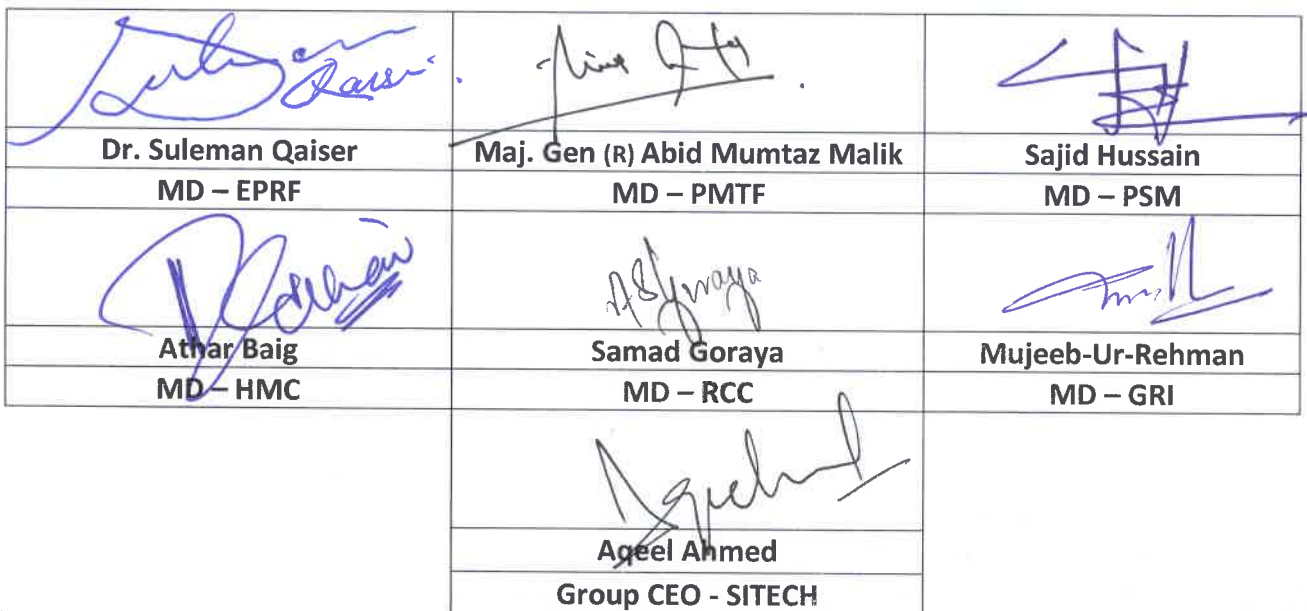 Dr. Suleman Qaiser
Maj. Gen (R) Abid Mumtaz Malik
Sajid Hussain
MD – EPRF
MD – PMTF
MD – PSM
Athar Baig
Samad Goraya
Mujeeb-Ur-Rehman
MD – HMC
MD – RCC
MD – GRI
Aqeel Ahmed
Group CEO - SITECH